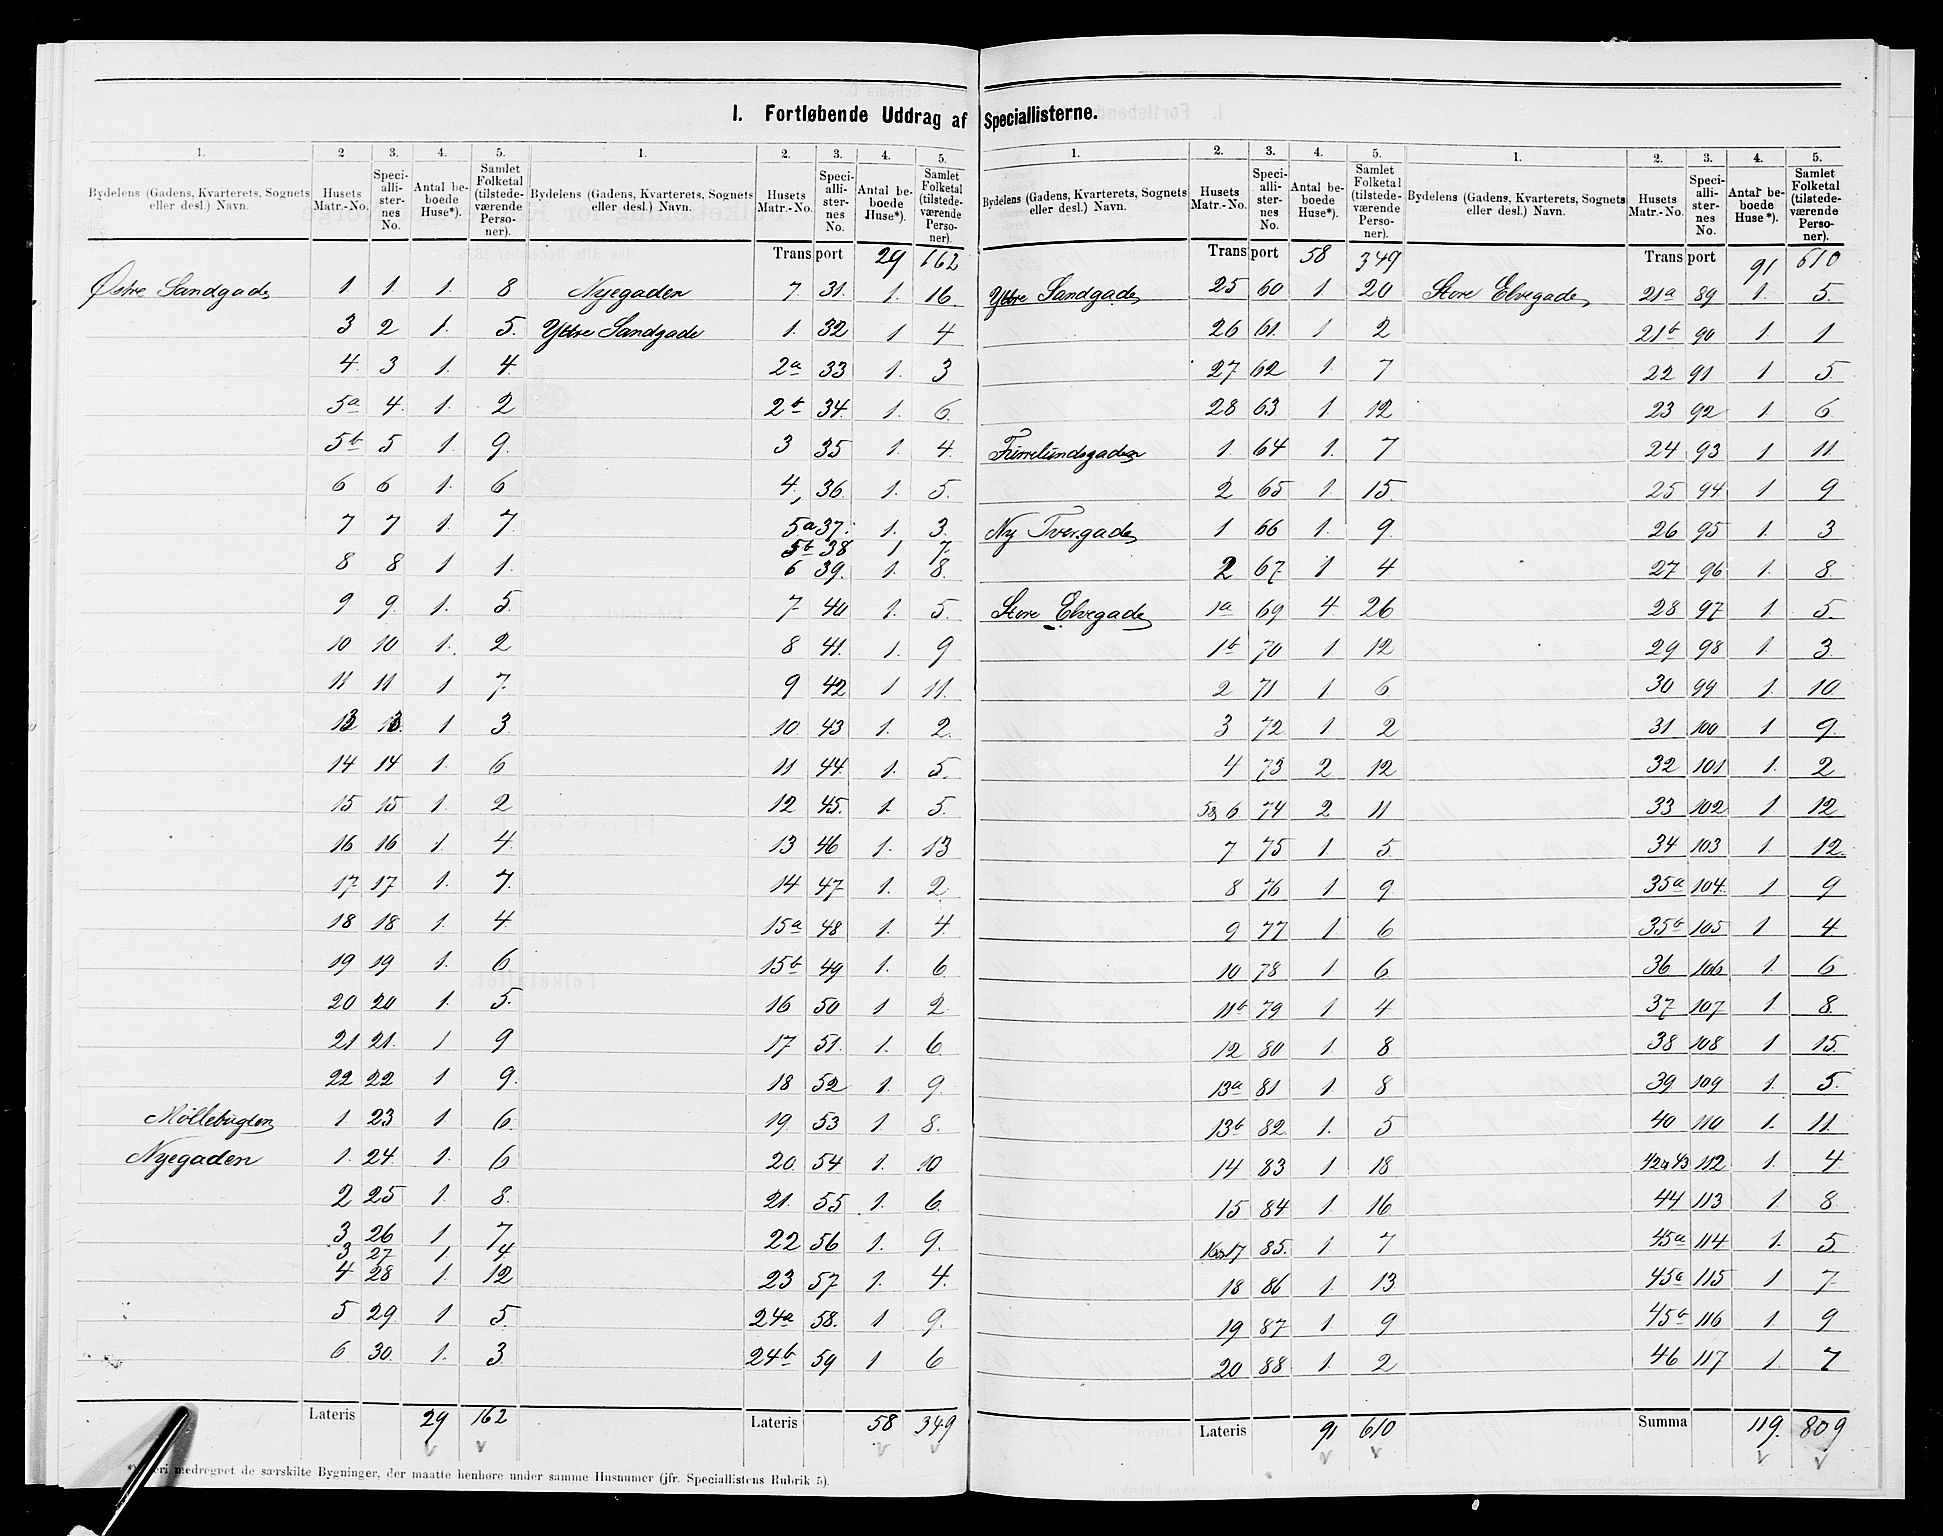 I. Fortløbende Uddrag af Speciallisterne.
1. 2 3. 4. 5.
Bydelens (Gadens, Kvarterets, Sognets eller desl.) Navn. Husets Matr.-No. Speci-alli-ster-nes No. Antal be-boede Huse*). Samlet Folketal (tilstede-værende Perso-ner).
Østre Sandgade 1 1 1. 8
3 2 1. 5.
4. 3 1. 4
5a 4. 1. 2
5b 5 1. 9.
6 6 1. 6
7 7 1. 7.
8 8 1 1.
9 9. 1. 5.
10 10 1. 2
11 11 1 7.
13 13. 1 3.
14 14 1. 6
15 15 1. 2
16 16 1. 4.
17. 17 1. 7.
18 18 1. 4.
19 19 1. 6
20 20 1. 5.
21 21. 1 9
22 22 1 9.
Møllebugten 1 23 1 6.
Nyegaden 1. 24. 1. 6
2 25 1. 8.
3 26 1 7
3 27 1 4
4 28 1 12
5 29 1 5.
6 30. 1. 3.
Lateris 29 162
1. 2. 3. 4. 5.
Bydelens (Gadens, Kvarterets, Sognets eller desl.) Navn. Husets Matr.-No. Speci-alli-ster-nes No. Antal be-boede Huse*). Samlet Folketal (tilstede-værende Perso-ner).
Transport 29 162
Nyegaden 7 31. 1. 16.
Ydre Sandgade 1. 32 1 4
2a 33 1. 3
2b 34. 1. 6.
3 35 1. 4.
4. 36. 1. 5.
5a 37. 1. 3.
5b 38 1 7.
6 39. 1. 8.
7. 40 1. 5.
8 41. 1. 9
9 42 1 11.
10. 43 1. 2.
11 44. 1. 5.
12 45. 1. 5.
13 46 1. 13
14 47. 1. 2.
15a 48 1. 4.
15b 49 1. 6
16 50 1 2.
17 51. 1. 6.
18 52 1. 9.
19. 53 1 8.
20. 54 1. 10
21. 55 1. 6.
22 56 1. 9.
23 57. 1. 4.
24a 58. 1 9.
24b 59 1 6
Lateris 58 349
*) Heri medregnet de særskilte Bygninger, der maatte henhøre under samme Husnumer (jfr. Speciallistens Rubrik 5).
1. 2. 3. 4. 5.
Bydelens (Gadens, Kvarterets, Sognets eller desl.) Navn. Husets Matr.-No. Speci-alli-ster-nes No. Antal be-boede Huse*). Samlet Folketal (tilstede-værende Perso-ner).
Transport 58 349
Ydre Sandgade 25 60 1 20
26 61. 1 2
27 62 1. 7
28 63 1 12
1. 64 1. 7
2 65 1. 15.
Ny Tvergade 1 66 1. 9.
2 67. 1 4.
Store Elvegade 1a 69 4 26
1b 70 1 12
2 71 1 6
3 72 1 2
4 73 2 12
5 & 6 74 2 11
7 75 1 5.
8 76 1 9
9 77 1 6
10 78 1 6.
11b 79 1 4
12 80 1. 8
13a 81 1 8
13b 82. 1. 5
14 83 1 18
15 84 1. 16
16 & 17 85. 1. 7
18 86 1. 13
19 87. 1 9
20 88 1. 2
Lateris 91 610
1. 2. 3. 4. 5.
Bydelens (Gadens, Kvarterets, Sognets eller desl.) Navn. Husets Matr.-No. Speci-alli-ster-nes No. Antal be-boede Huse*). Samlet Folketal (tilstede-værende Perso-ner).
Transport 91 610
Store Elvegade 21a 89 1. 5.
21b 90 1. 1
22 91 1 5.
23 92 1. 6.
24 93 1 11.
25 94 1 9
26 95 1. 3
27 96 1. 8.
28 97 1. 5.
29 98 1. 3.
30 99 1. 10.
31 100 1 9.
32 101 1. 2
33 102 1 12
34 103 1. 12.
35a 104. 1 9
35b 105 1 4
36 106 1. 6
37 107 1 8.
38 108 1 15.
39 109 1. 5.
40 110 1. 11.
42 & 43 112 1. 4
44 113 1 8.
45a 114 1. 5.
45a 115 1 7
45b 116 1. 9
46 117 1. 7
Summa 119. 809